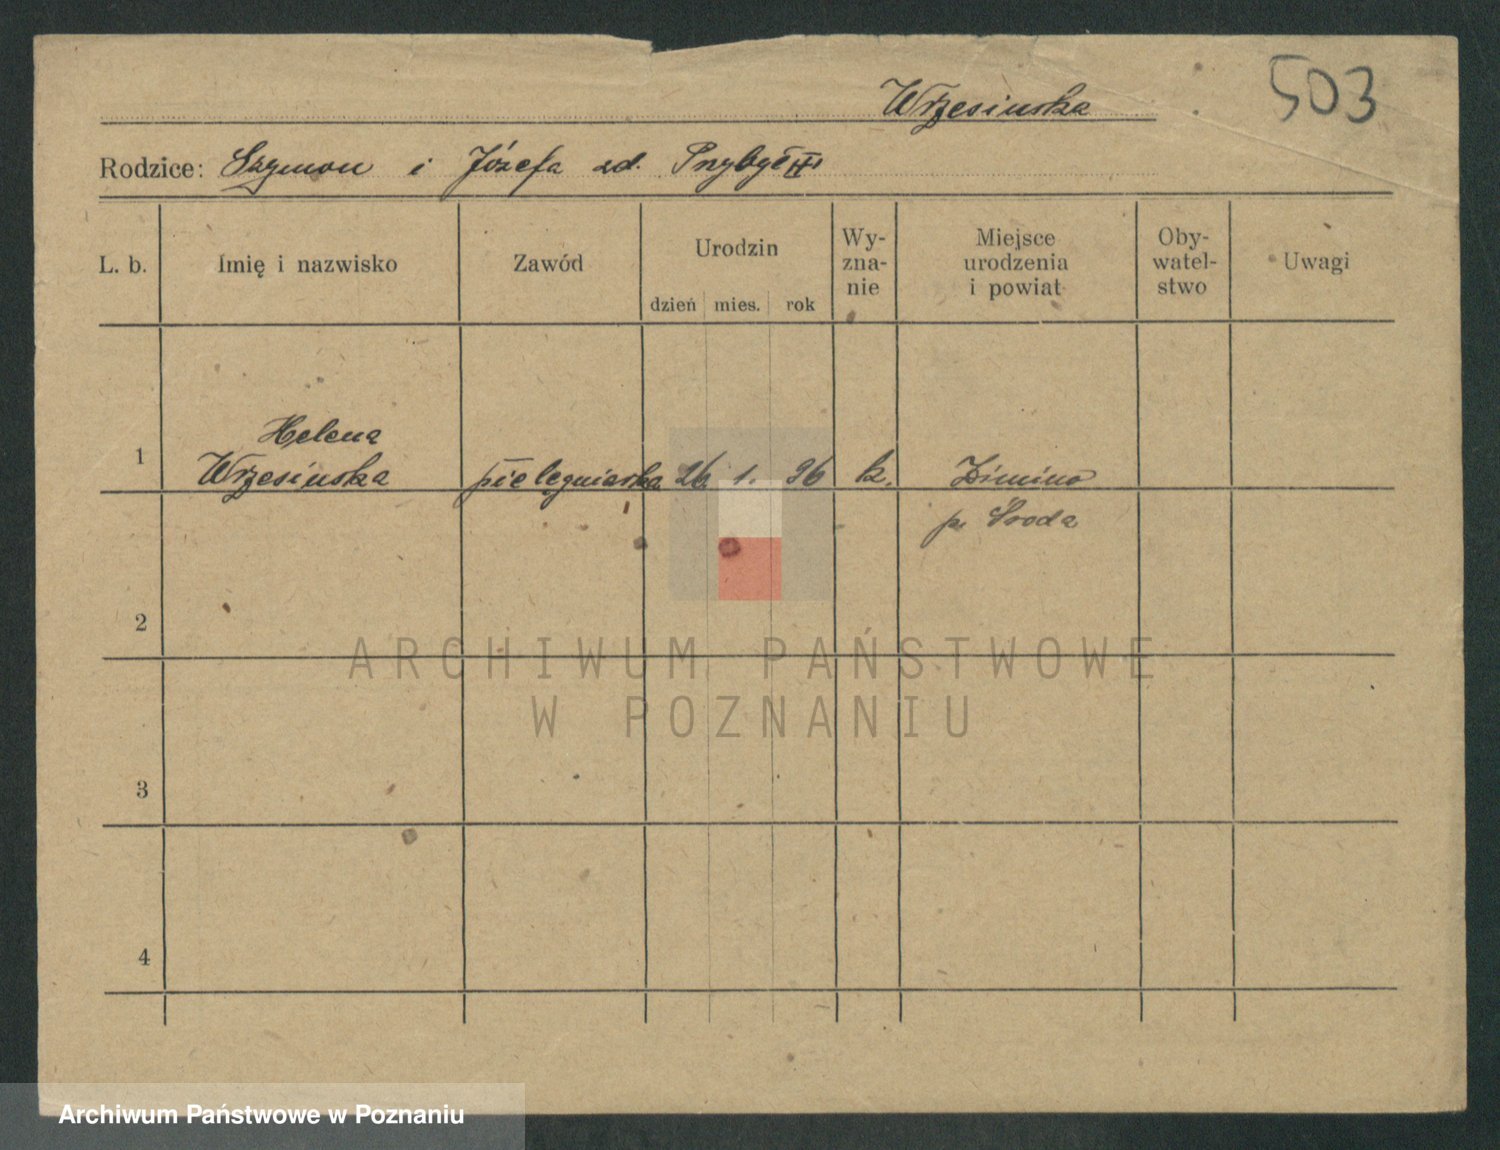 Wrzesinska
503
Rodzice: Szymon i Józefa zd. Przybył
L. b.
Imię i nazwisko
Zawód
Urodzin
dzień mies. rok
Wy-
zna-
nie
Miejsce
urodzenia
i powiat
Oby-
watel-
stwo
Uwagi
1
Helena
Wrzesinska
pielęgniarka
26 1. 96
k.
Zimino
p. Środa
2
3
4
ARCHIWUM PAŃSTWOWE
W POZNANIU
Archiwum Państwowe w Poznaniu